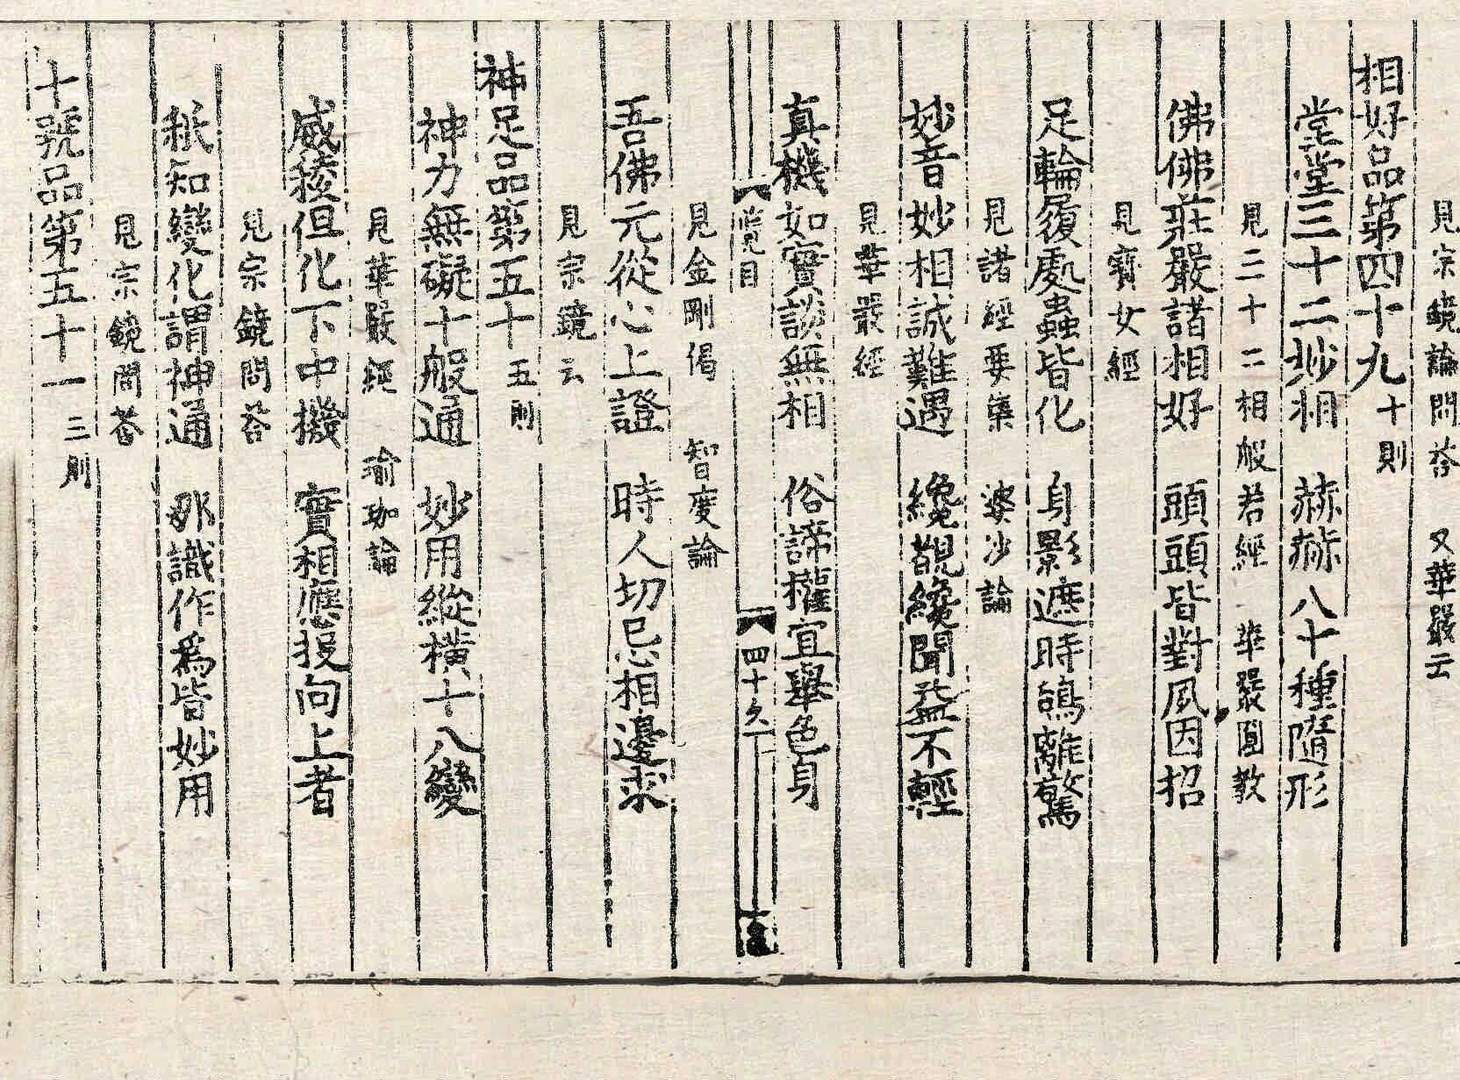 見宗鏡論問荅　又華嚴云
相好品第四十九 十則
堂堂三十二妙相　赫赫八十種隨形
見三十二相般若經　華嚴圓教
佛佛莊嚴諸相好　頭頭皆對夙因招
見寶女經
足輪履處蟲皆化　身影遮時鴿離驚
見諸經要集　婆沙論
妙音妙相誠難遇　纔覩纔聞益不輕
見華嚴經
真機如實談無相　俗諦權宜舉色身
目　四十九
見金剛偈　智度論
吾佛元從心上證　時人切忌相邊求
見宗鏡云
神足品第五十 五則
神力無礙十般通　妙用縱橫十八變
見華嚴經　瑜珈論
威稜但化下中機　實相應投向上者
見宗鏡問荅
秖知變化謂神通　那識作爲皆妙用
見宗鏡問荅
十號品第五十一 三則